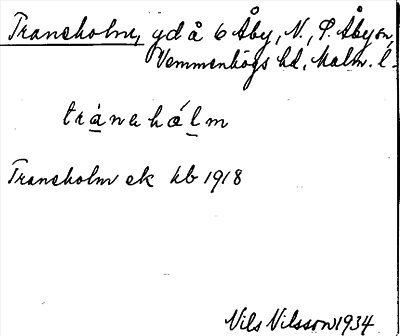 Traneholm, gd å 6 Åby, N., Ö. Åby sn,
Vemmenhögs hd, Malm. l.
trạ̊nahǻlm
Traneholm ek kb 1918
Nils Nilsson 1934